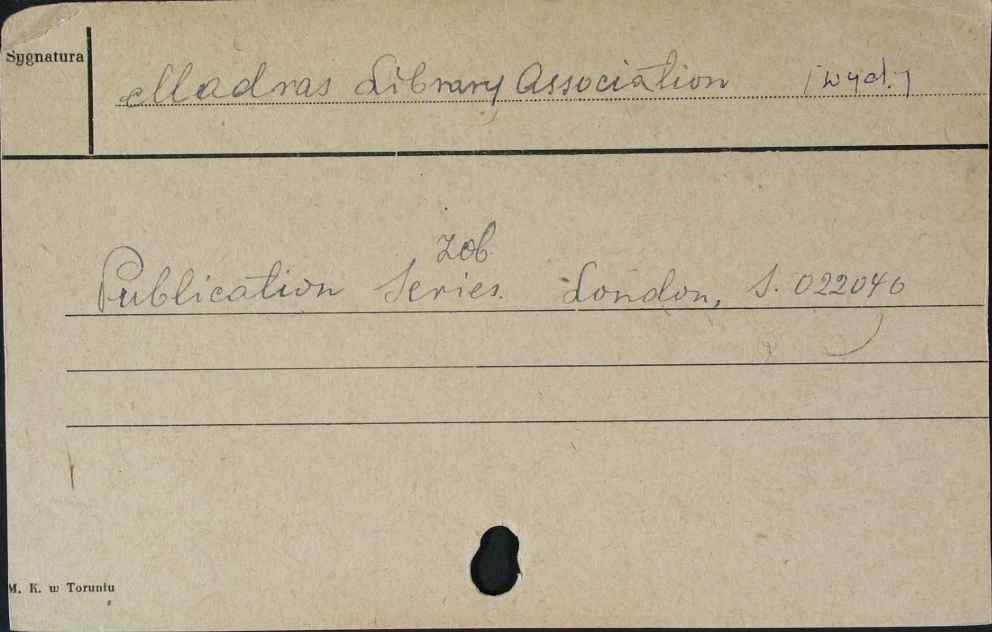 Sygnatura
Madras Library Association [wyd.]
zob.
Publication Series. London, S. 022040
M. K. w Toruniu